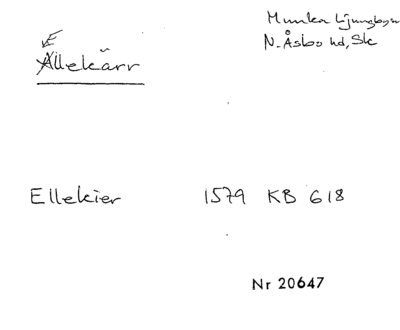 Munka Ljungbyn
N. Åsbo hd, Sk
E
Allekärr
Ellekier 1579 KB 618
Nr 20647